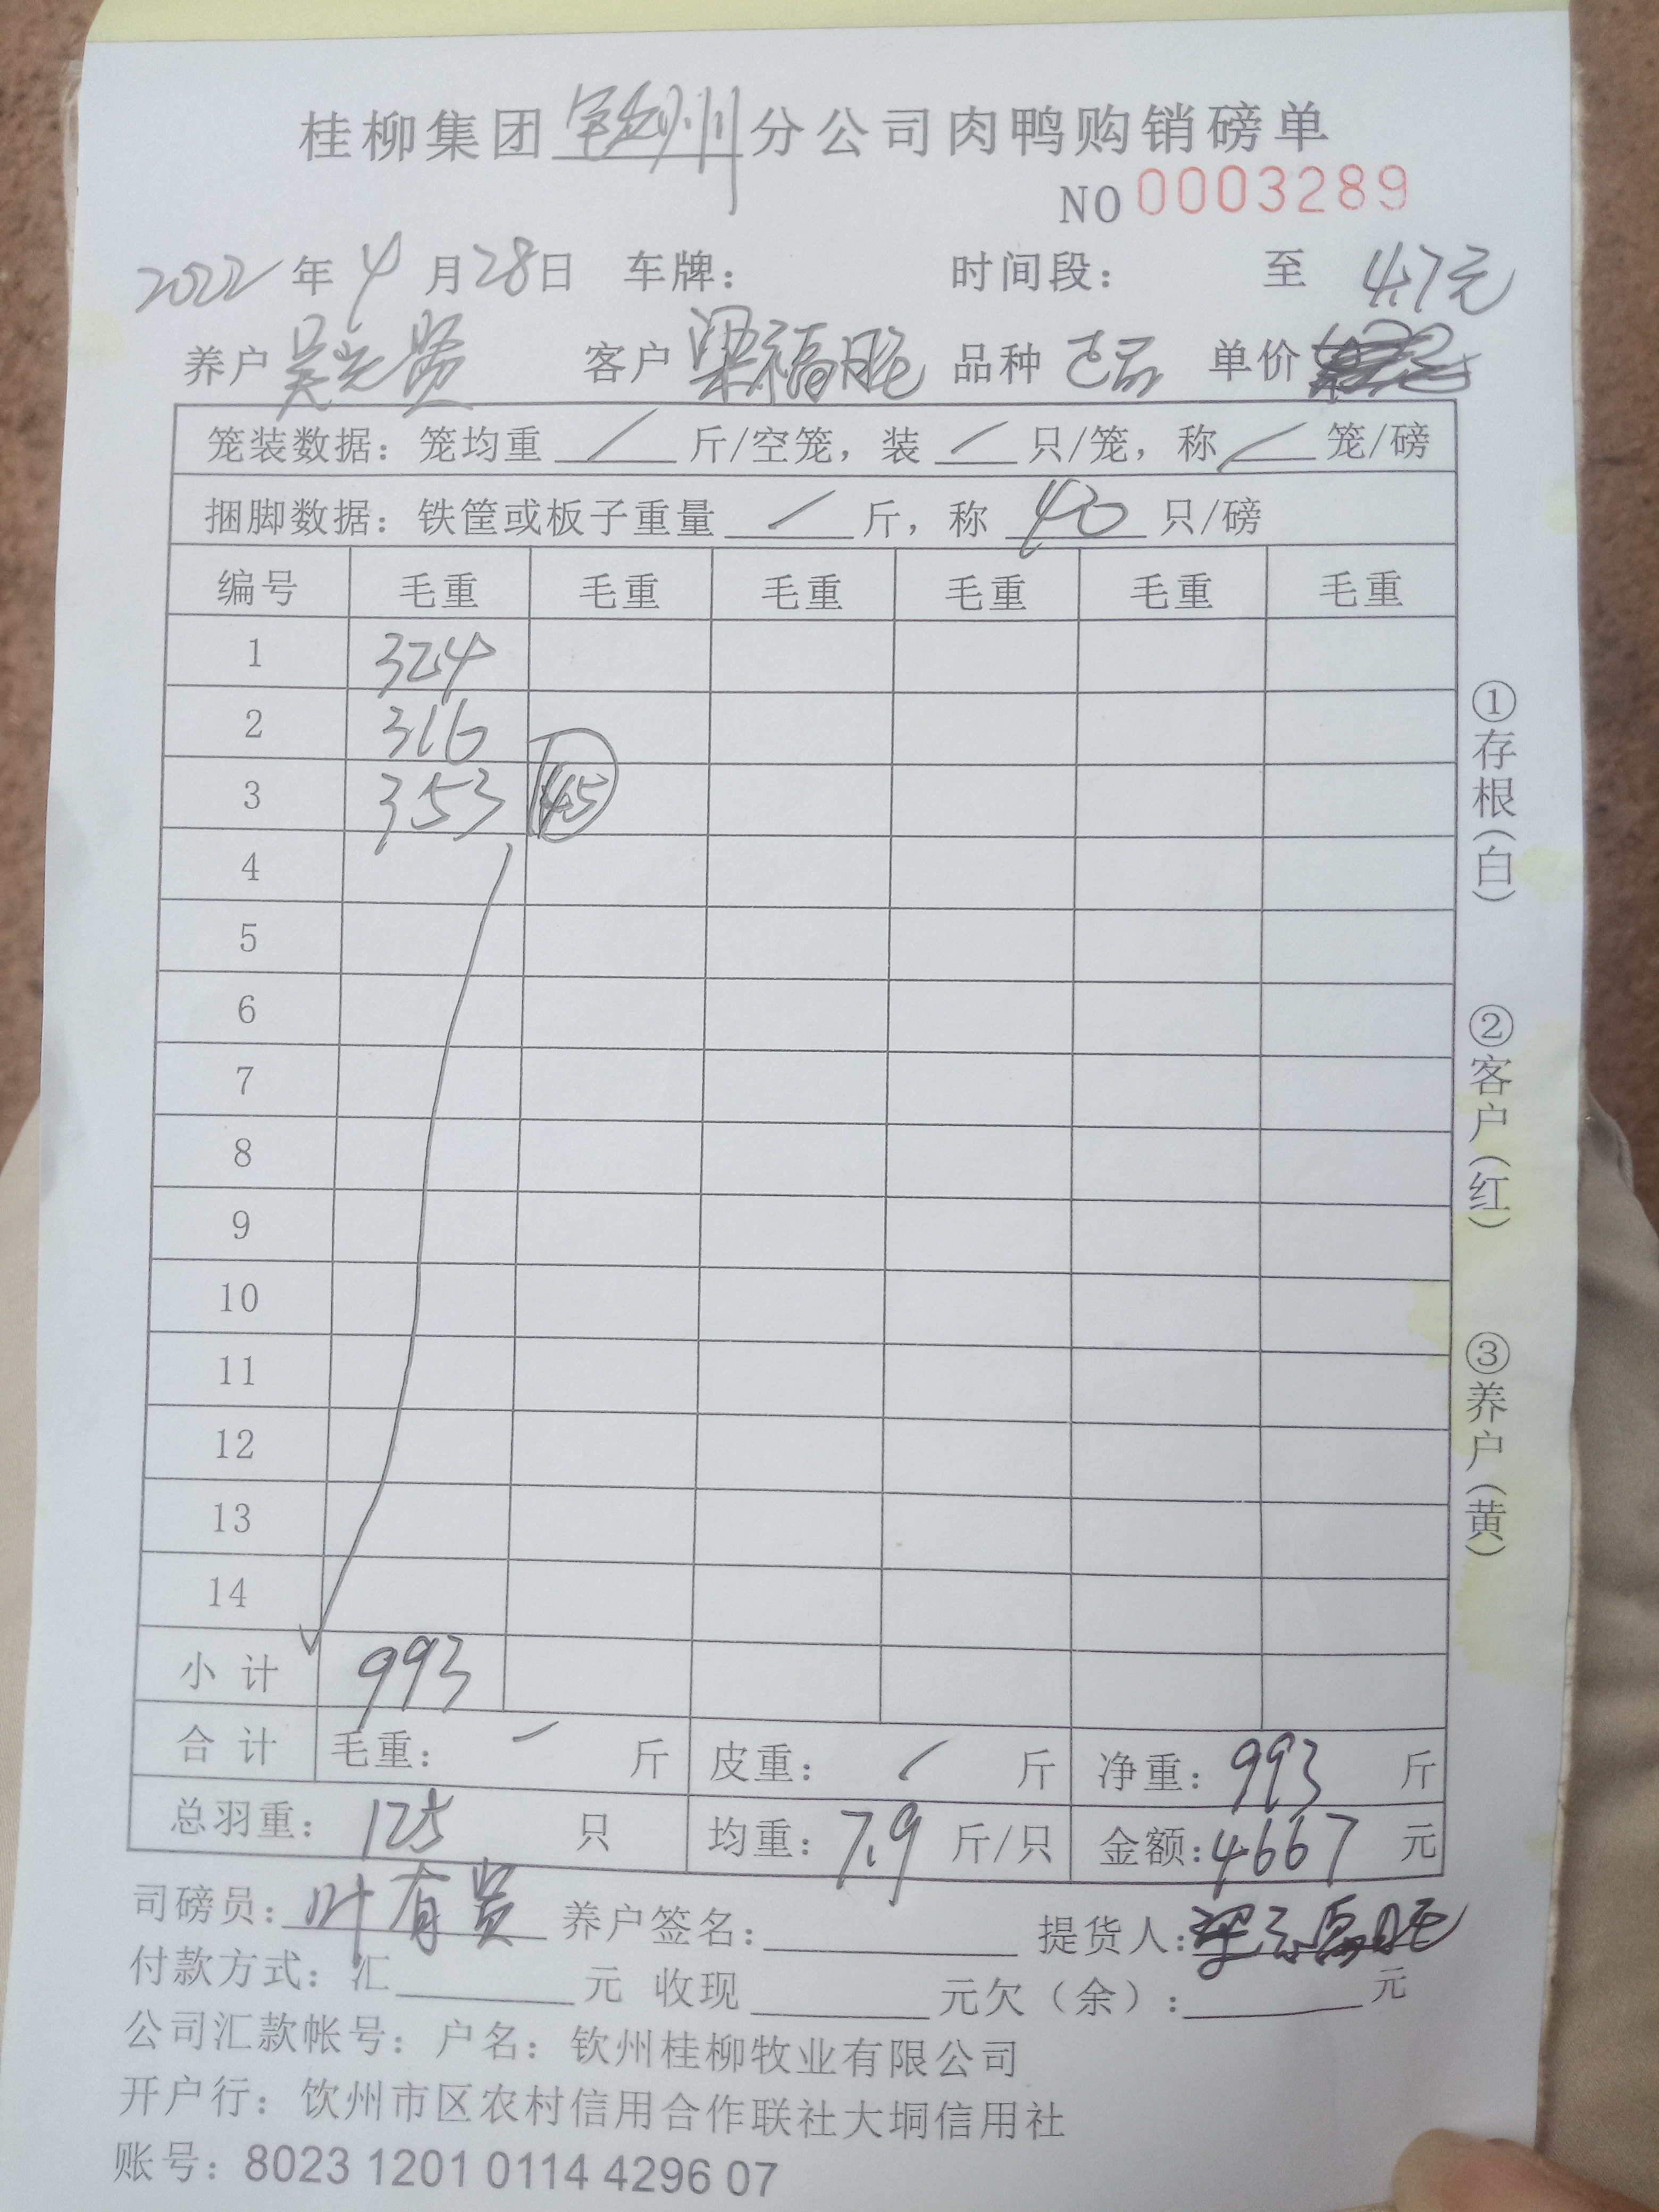 桂柳集团钦州分公司肉鸭购销磅单
NO 0003289
2022年4月28日 车牌： 时间段： 至 4.7元
养户 吴光贤 客户 梁福旺 品种 单价
笼装数据：笼均重 / 斤/空笼，装 / 只/笼，称 / 笼/磅
捆脚数据：铁筐或板子重量 / 斤，称 40 只/磅
编号 毛重 毛重 毛重 毛重 毛重 毛重
1 324
2 316
3 353 45
4
5
6
7
8
9
10
11
12
13
14
小计 993
合计 毛重： - 斤 皮重： / 斤 净重：993 斤
总羽重：125 只 均重：7.9 斤/只 金额：4667 元
司磅员：叶有贤 养户签名： 提货人：梁福旺
付款方式：汇 元 收现 元欠（余）： 元
公司汇款帐号：户名：钦州桂柳牧业有限公司
开户行：饮州市区农村信用合作联社大垌信用社
账号：8023 1201 0114 4296 07
①存根（白） ②客户（红） ③养户（黄）